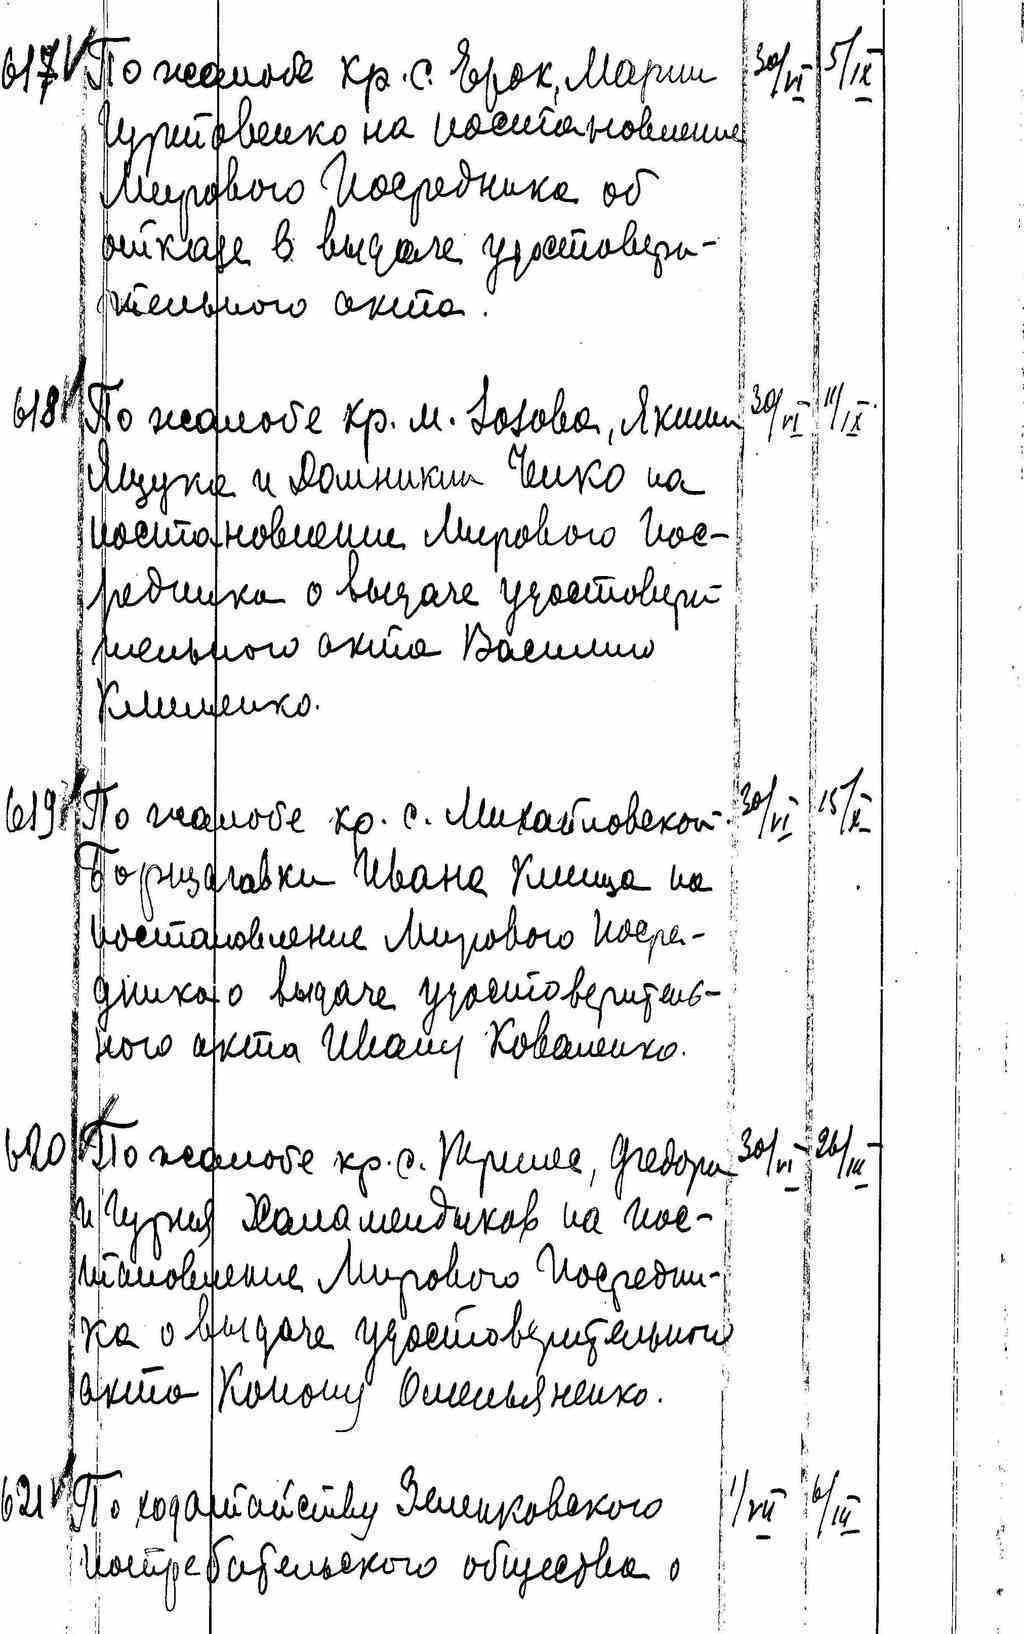 617 По жалобе кр. с. Ерок, Марии 30/VI 5/IX
Гуртовенко на постановление
Мирового Посредника об
отказе в выдаче удостовери-
тельного акта.
618 По жалобе кр. м. Зозова, Якима 30/VI 11/IX
Ящука и Домникии Чико на
постановление Мирового Пос-
редника о выдаче удостовери-
тельного акта Василию
Клименко.
619 По жалобе кр. с. Михайловской- 30/VI 15/X
Борщаговки Ивана Клища на
постановление Мирового Посре-
дника о выдаче удостоверитель-
ного акта Ивану Коваленко.
620 По жалобе кр. с. Феодора 30/VI 26/III
и Гурия Халамендыков на пос-
тановление Мирового Посредни-
ка о выдаче удостоверительного
акта Конону Омельяненко.
621 По ходатайству Зеленковского 1/VII 6/III
потребительского общества о